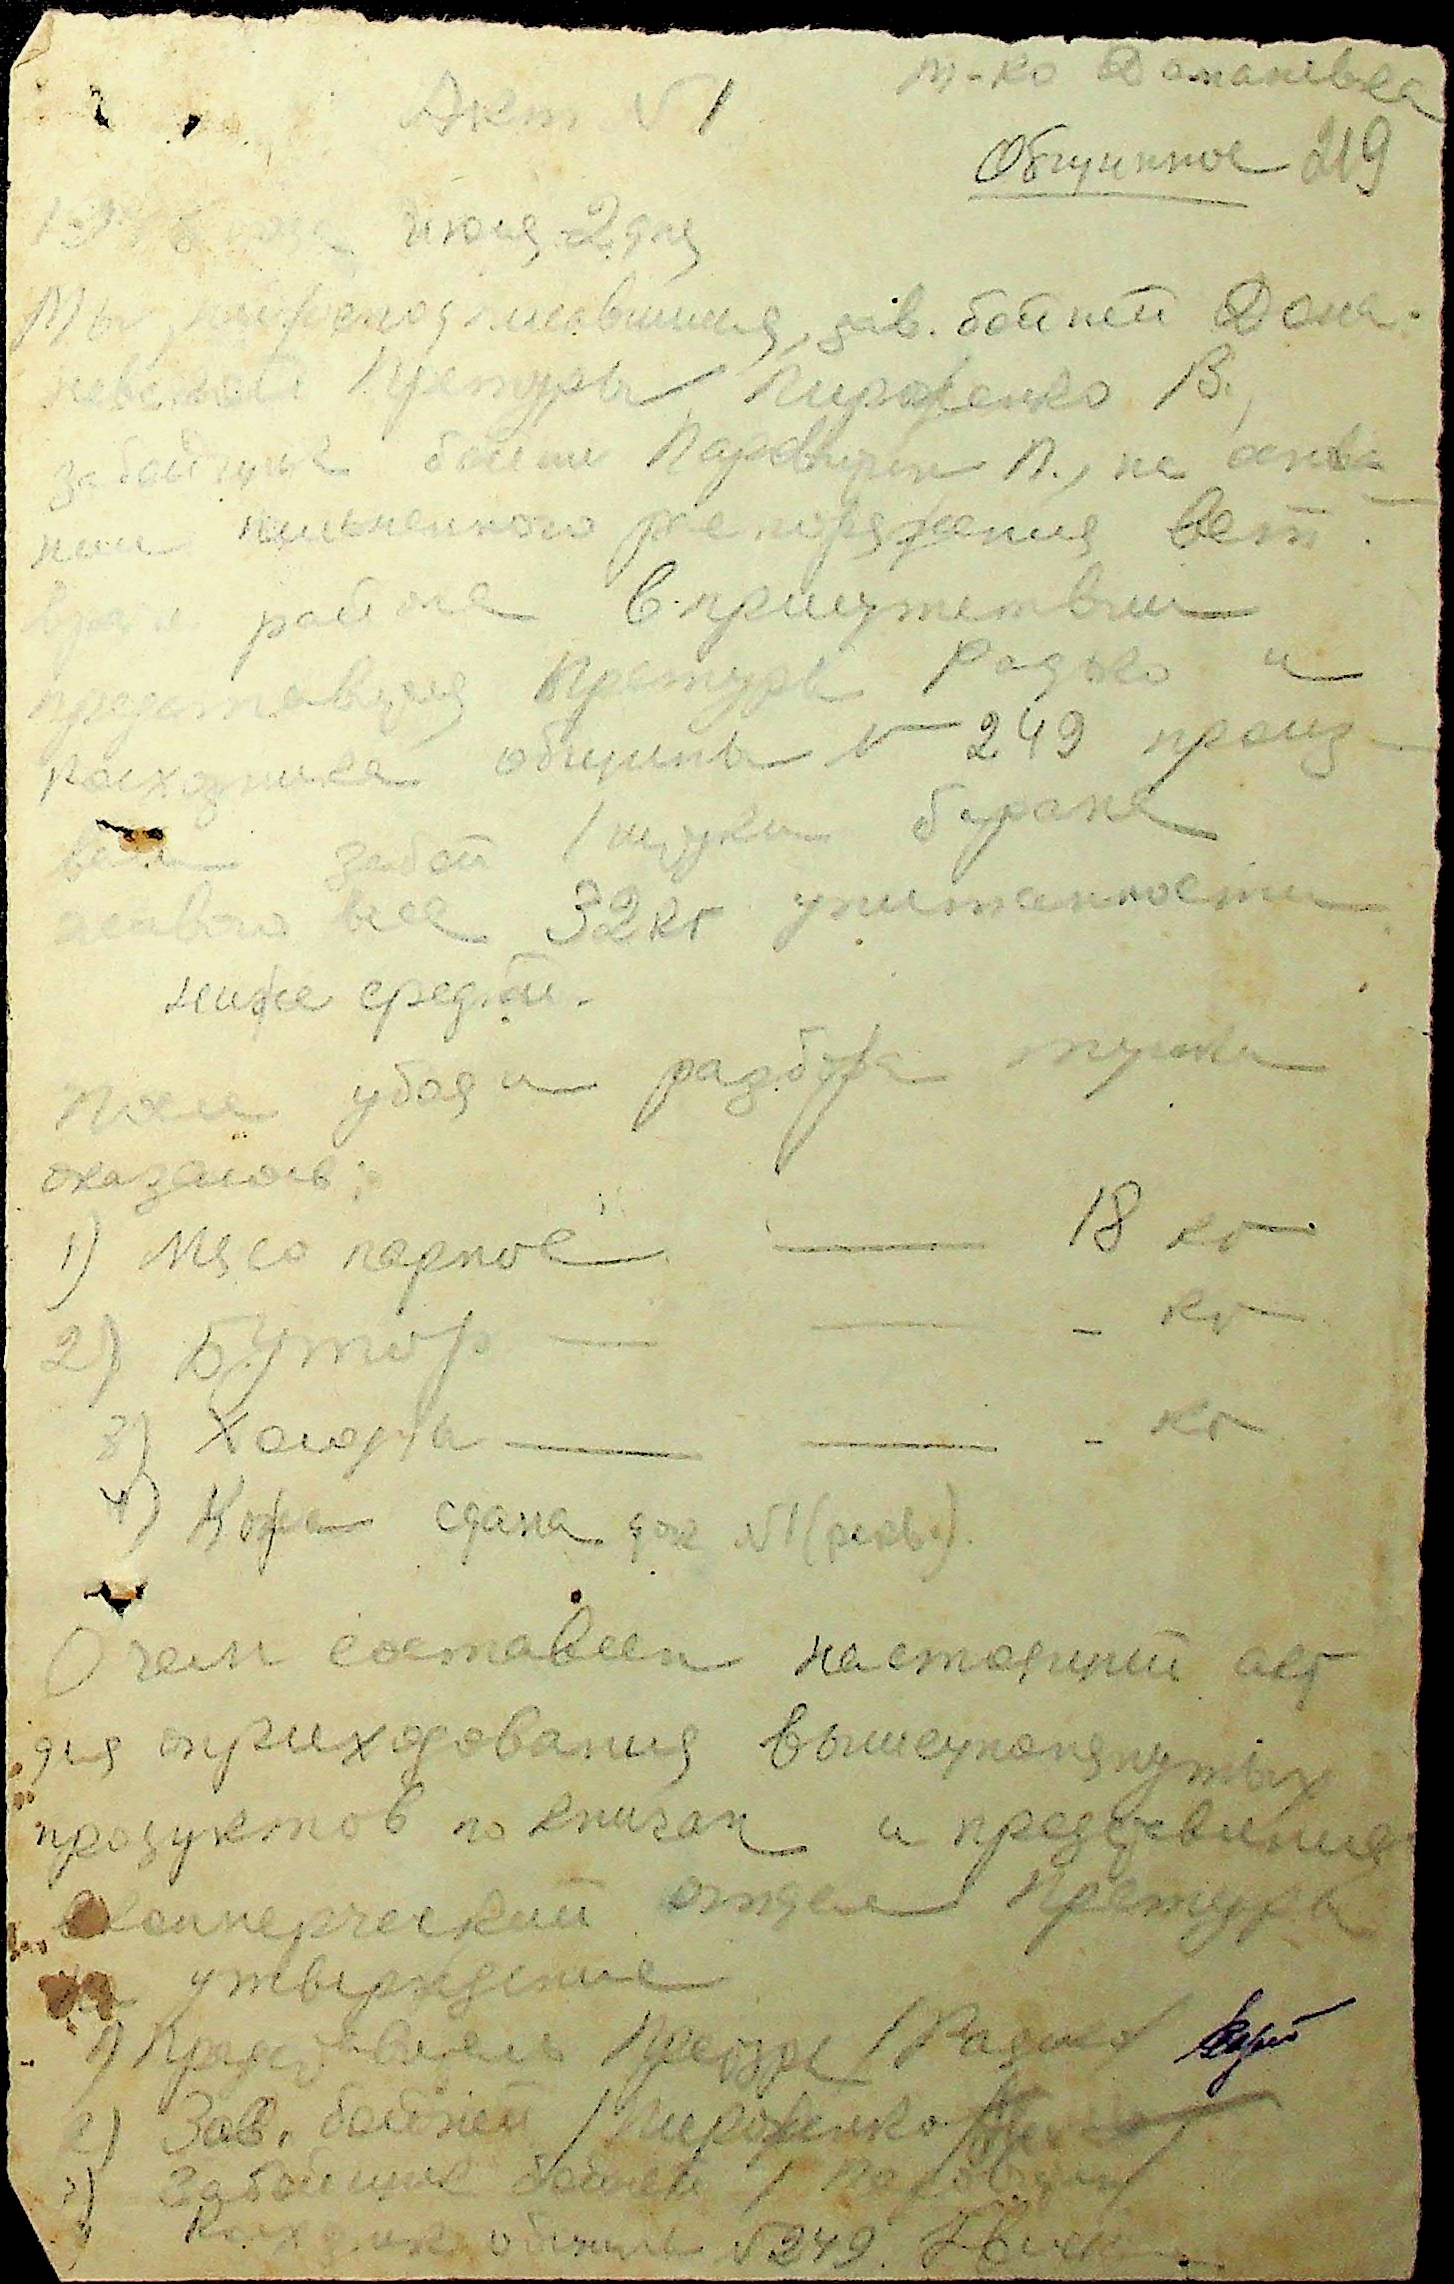 м-ко Доманевка
Акт №1
Общинное 219
194 года июня 2 дня
Мы, нижеподписавшиеся, зав. бойней Дома-
невской Претуры Пироженко В.,
забойщик бойни П., на основа
нии письменного распоряжения вет.
врача района в присутствии
представителя Претуры Радько и
расходчика общины № 249 произ-
вели забой 1 штуки барана
живого веса 32 кг упитанности
ниже средней.
После убоя и разбора туши
оказалось:
1) Мясо парное — 18 кг
2) Бутор — — - кг
3) — — - кг
4) Кожа сдана №1
О чем составлен настоящий акт
для оприходования вышеупомянутых
продуктов по книгам и представления
в коммерческий отдел Претуры
на утверждение
1) Представитель Претуры /Радько/
2) Зав. бойней /Пироженко/
3) Забойщик бойни
общины №249.